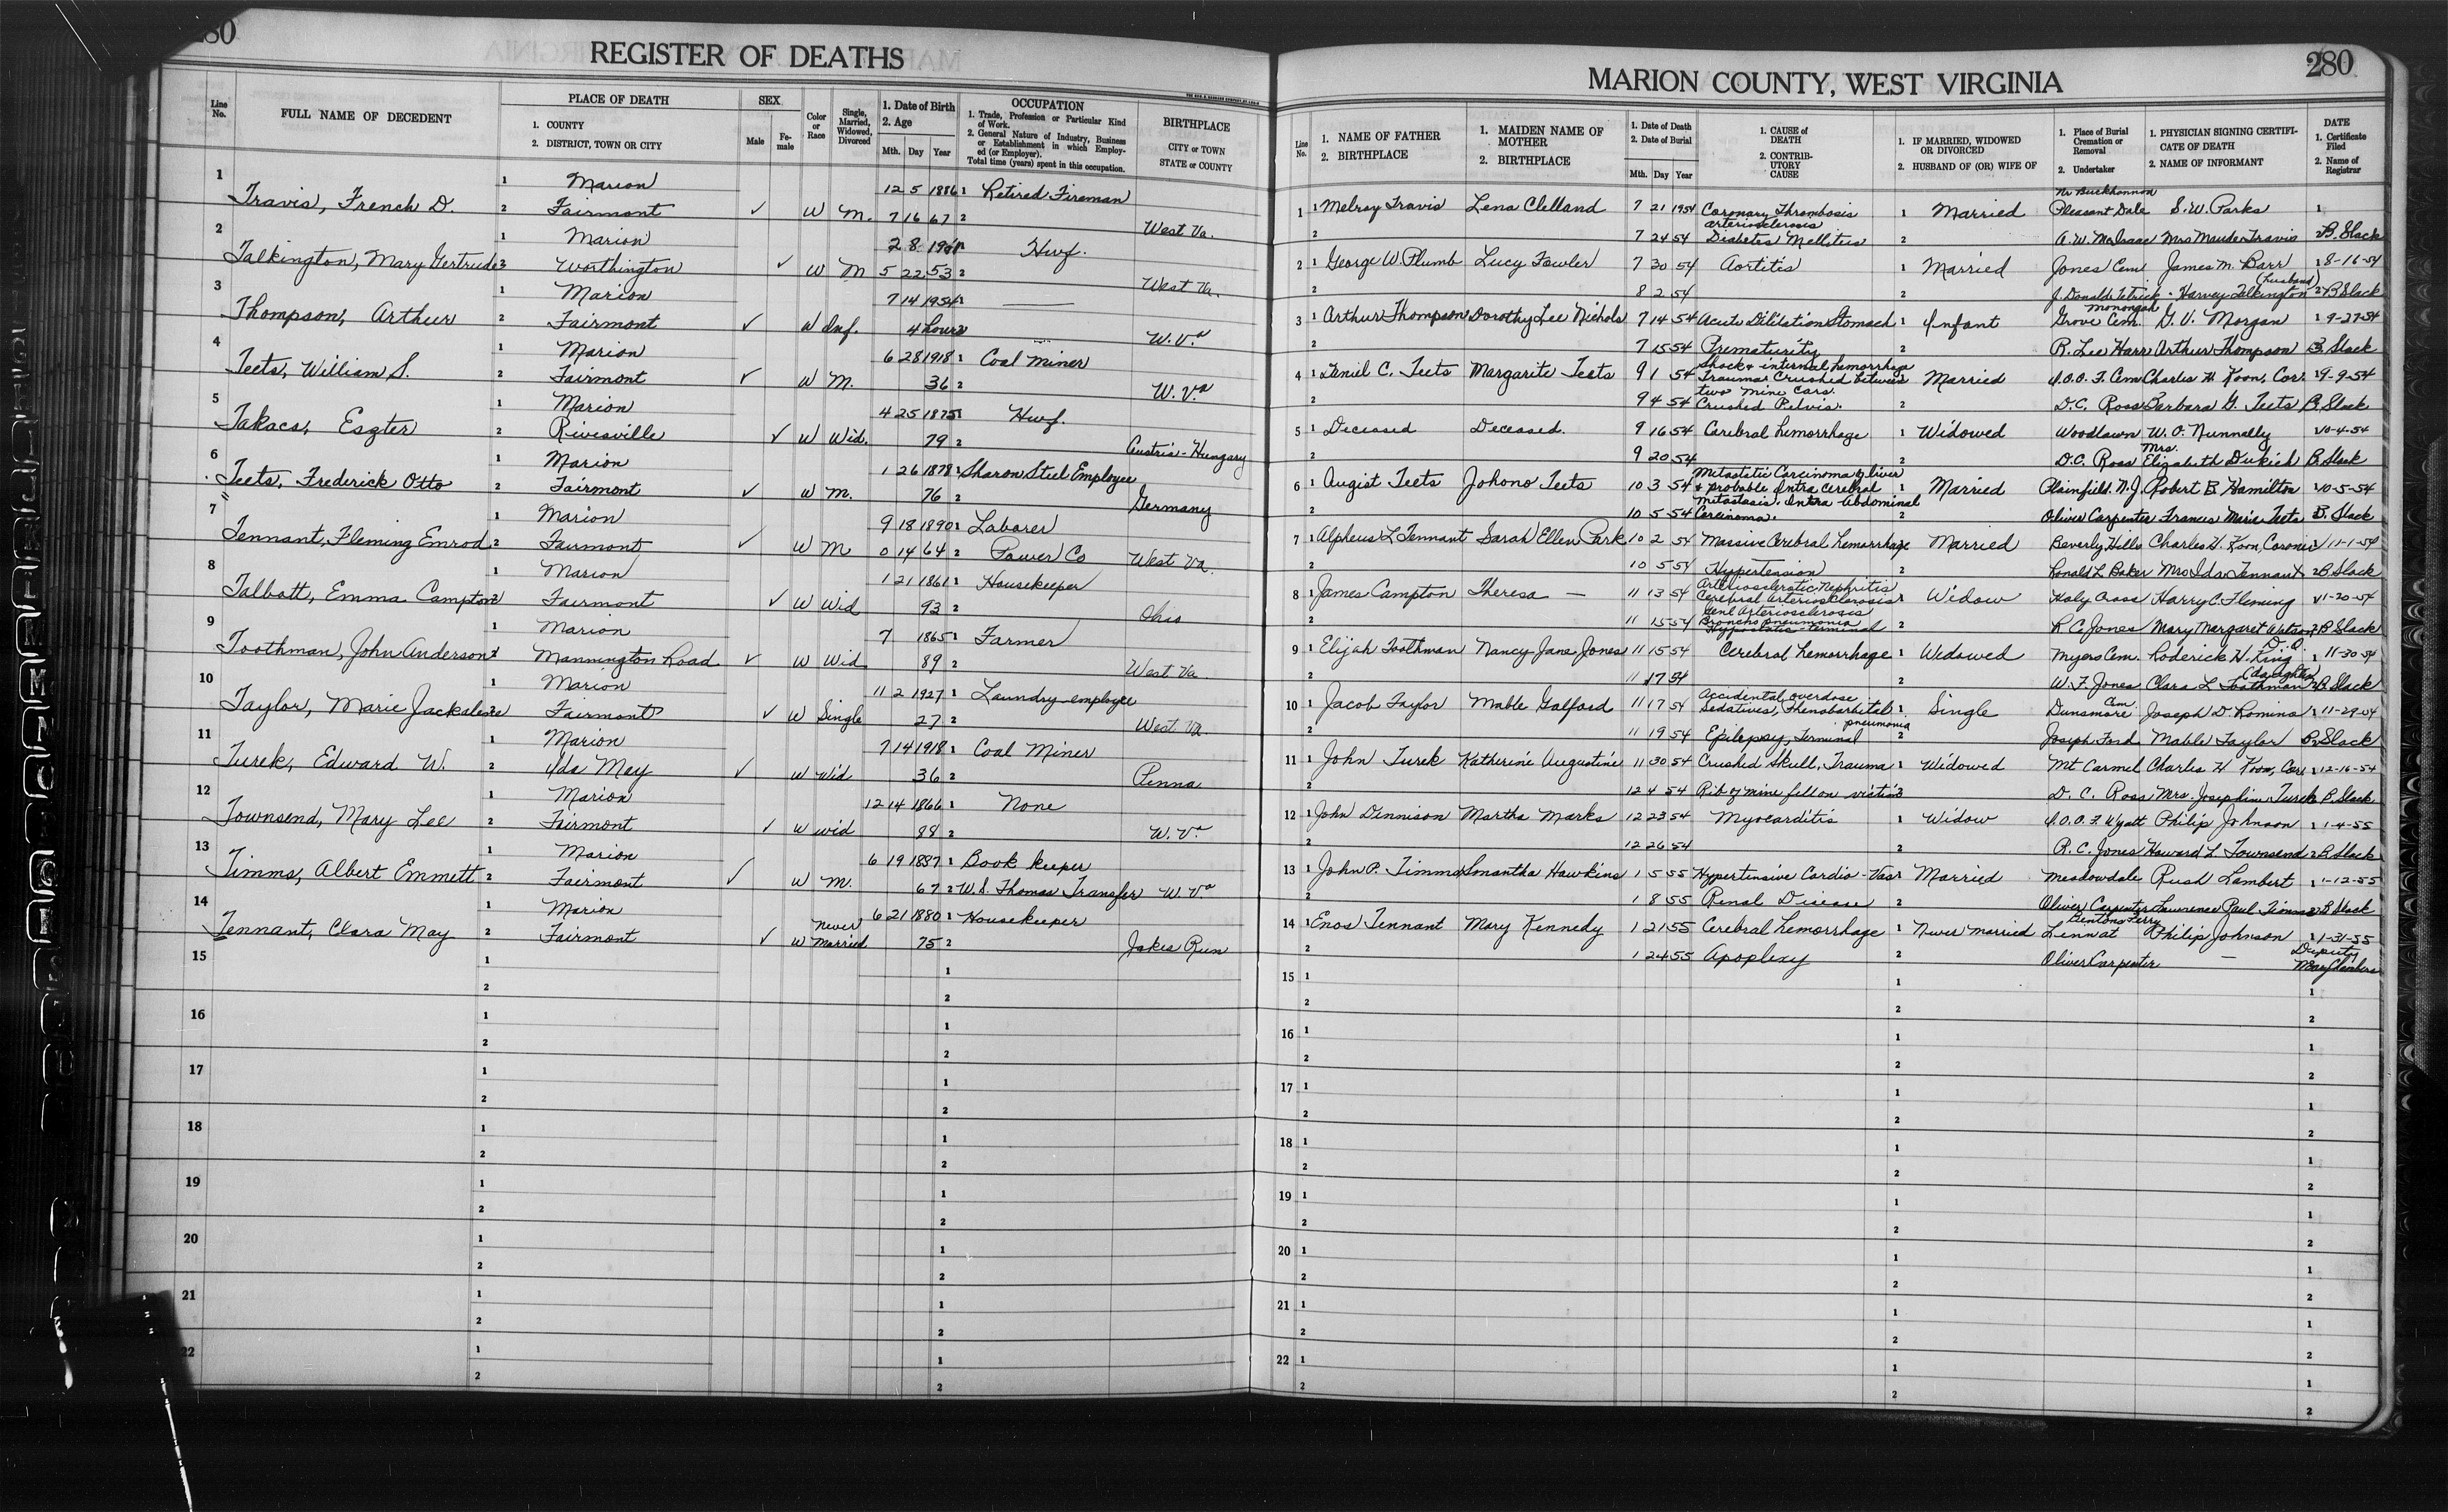 280
REGISTER OF DEATHS
Line No.
FULL NAME OF DECEDENT
PLACE OF DEATH
1. COUNTY
2. DISTRICT, TOWN OR CITY
SEX
Male
Female
Color or Race
Single, Married, Widowed, Divorced
1. Date of Birth
2. Age
Mth. Day Year
OCCUPATION
1. Trade, Profession or Particular Kind of Work.
2. General Nature of Industry, Business or Establishment in which Employed (or Employer).
Total time (years) spent in this occupation.
BIRTHPLACE
CITY or TOWN
STATE or COUNTY
1 Travis, French D. 1 Marion 12 5 1886 1 Retired Fireman
2 Fairmont ✓ W M. 7 16 67 2 West Va.
2 Talkington, Mary Gertrude 1 Marion 2 8 1901 Hwf.
2 Worthington ✓ W M 5 22 53 2 West Va.
3 Thompson, Arthur 1 Marion 7 14 1954 1 —
2 Fairmont ✓ W Inf. 4 hours W. Va
4 Teets, William S. 1 Marion 6 28 1918 1 Coal Miner
2 Fairmont ✓ W M. 36 2 W. Va
5 Takacs, Eszter 1 Marion 4 25 1875 1 Hwf.
2 Rivesville ✓ W Wid. 79 2 Austria-Hungary
6 Teets, Frederick Otto 1 Marion 1 26 1878 1 Sharon Steel Employee
2 Fairmont ✓ W M. 76 2 Germany
7 Tennant, Fleming Emrod 1 Marion 9 18 1890 1 Laborer
2 Fairmont ✓ W M 0 14 64 2 Power Co West Va.
8 Talbott, Emma Campton 1 Marion 1 21 1861 1 Housekeeper
2 Fairmont ✓ W Wid 93 2 Ohio
9 Toothman, John Anderson 1 Marion 7 1865 1 Farmer
2 Mannington Road ✓ W Wid 89 2 West Va.
10 Taylor, Marie Jackalene 1 Marion 11 2 1927 1 Laundry employee
2 Fairmont ✓ W Single 27 2 West Va.
11 Turek, Edward W. 1 Marion 7 14 1918 1 Coal Miner
2 Ida May ✓ W Wid 36 2 Penna
12 Townsend, Mary Lee 1 Marion 12 14 1866 1 None
2 Fairmont ✓ W wid 88 2 W. Va
13 Timms, Albert Emmett 1 Marion 6 19 1887 1 Book keeper
2 Fairmont ✓ W M. 67 2 W. S. Thomas Transfer W. Va
14 Tennant, Clara May 1 Marion 6 21 1880 1 Housekeeper
2 Fairmont ✓ W Never Married 75 2 Jakes Run
15 1 1
2 2
16 1 1
2 2
17 1 1
2 2
18 1 1
2 2
19 1 1
2 2
20 1 1
2 2
21 1 1
2 2
22 1 1
2 2
MARION COUNTY, WEST VIRGINIA
280
Line No.
1. NAME OF FATHER
2. BIRTHPLACE
1. MAIDEN NAME OF MOTHER
2. BIRTHPLACE
1. Date of Death
2. Date of Burial
Mth. Day Year
1. CAUSE of DEATH
2. CONTRIBUTORY CAUSE
1. IF MARRIED, WIDOWED OR DIVORCED
2. HUSBAND OF (OR) WIFE OF
1. Place of Burial Cremation or Removal
2. Undertaker
1. PHYSICIAN SIGNING CERTIFICATE OF DEATH
2. NAME OF INFORMANT
DATE
1. Certificate Filed
2. Name of Registrar
Nr Buckhannon
1 1 Melroy Travis Lena Clelland 7 21 1954 Coronary Thrombosis 1 Married Pleasant Dale S. W. Parks 1
arteriosclerosis
2 7 24 54 Diabetes Mellitis 2 A. W. McIsaac Mrs Maude Travis 2 B. Slack
2 1 George W. Plumb Lucy Fowler 7 30 54 Aortitis 1 Married Jones Cem James M. Barr 1 8-16-54
(husband)
2 8 2 54 2 J. Donald Tetrick Harvey Talkington 2 B Slack
Monongah
3 1 Arthur Thompson Dorothy Lee Nichols 7 14 54 Acute Dilitation Stomach 1 Infant Grove Cem. G. V. Morgan 1 9-27-54
2 7 15 54 Prematurity 2 R. Lee Harr Arthur Thompson B. Slack
Shock & internal hemorrhage
4 1 Daniel C. Teets Margarite Teets 9 1 54 Trauma Crushed between Married I.O.O.F. Cem Charles H. Koon, Cor. 1 9-9-54
two mine cars.
2 9 4 54 Crushed Pelvis. 2 D. C. Ross Barbara G. Teets B. Slack
5 1 Deceased Deceased. 9 16 54 Cerebral hemorrhage 1 Widowed Woodlawn W. O. Nunnally 10-4-54
2 9 20 54 2 D.C. Ross Mrs. Elizabeth Dukich B. Slack
Metastatic Carcinoma of liver
6 1 Augist Teets Johono Teets 10 3 54 & probable Intra Cerebral 1 Married Plainfield. N.J. Robert B. Hamilton 10-5-54
metastasis. Intra Abdominal
2 10 5 54 Carcinoma. 2 Oliver Carpenter Frances Marie Teets B. Slack
7 1 Alpheus L Tennant Sarah Ellen Park 10 2 54 Massive Cerebral hemorrhage Married Beverly Hills Charles H. Koon, Coroner 11-1-54
2 10 5 54 Hypertension 2 Ronald L Baker Mrs Ida Tennant 2 B Slack
Arteriosclerotic Nephritis
8 1 James Campton Theresa — 11 13 54 Cerebral Arteriosclerosis 1 Widow Holy Cross Harry C. Fleming 11-20-54
Genl Arteriosclerosis
Broncho pneumonia
2 11 15 54 Hypostatic-terminal 2 R C. Jones Mary Margaret Watson 2 B Slack
D. O.
9 1 Elijah Toothman Nancy Jane Jones 11 15 54 Cerebral hemorrhage 1 Widowed Myers Cem. Roderick H. King 1 11-30-54
(daughter)
2 11 17 54 2 W. F. Jones Clara L Toothman 2 B Slack
Accidental overdose
10 1 Jacob Taylor Mable Galford 11 17 54 Sedatives, Phenobarbital 1 Single Dunsmore Cem. Joseph D Romino 1 11-29-54
pneumonia
2 11 19 54 Epilepsy, Terminal 2 Joseph Ford Mable Taylor B. Slack
11 1 John Turek Katherine Augustine 11 30 54 Crushed Skull, Trauma 1 Widowed Mt Carmel Charles H Koon, Cor 1 12-16-54
2 12 4 54 Rib of mine fell on victim D. C. Ross Mrs. Josephine Turek B. Slack
12 1 John Dennison Martha Marks 12 23 54 Myocarditis 1 Widow I.O.O.F. Wyatt Philip Johnson 1 1-4-55
2 12 26 54 2 R. C. Jones Howard L Townsend 2 B Slack
13 1 John P. Timms Smantha Hawkins 1 5 55 Hypertensive Cardio-Vas Married Meadowdale Rush Lambert 1 1-12-55
2 1 8 55 Renal Disease 2 Oliver Carpenter Lawrence Paul Timms 2 B Slack
Bentons Ferry
14 1 Enos Tennant Mary Kennedy 1 21 55 Cerebral hemorrhage 1 Never married Linn at Philip Johnson 1 1-31-55
2 1 24 55 Apoplexy 2 Oliver Carpenter — Deputy Mary Chambers
15 1 1 1
2 2 2
16 1 1 1
2 2 2
17 1 1 1
2 2 2
18 1 1 1
2 2 2
19 1 1 1
2 2 2
20 1 1 1
2 2 2
21 1 1 1
2 2 2
22 1 1 1
2 2 2